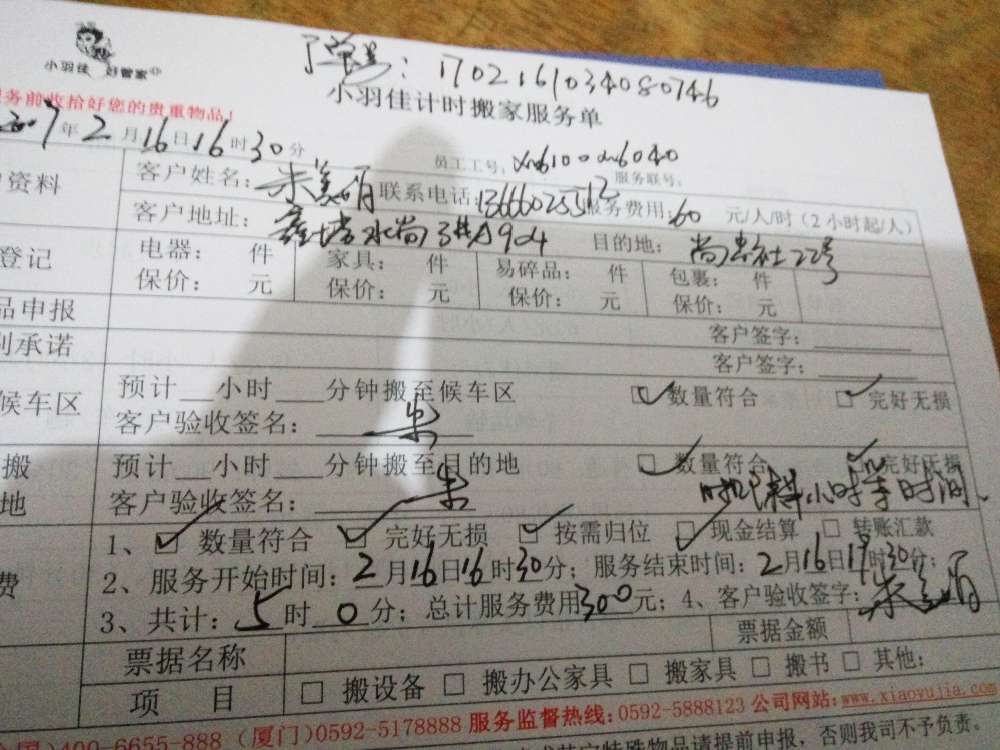 小羽佳 好管家
订单号：1702161034080746
小羽佳计时搬家服务单
务前收拾好您的贵重物品！
2017年2月16日16时30分
员工工号： 服务联号：
资料 客户姓名： 联系电话：13666025512 服务费用：60 元/人/时（2小时起/人）
客户地址： 目的地：
登记 电器： 件 家具： 件 易碎品： 件 包裹： 件
保价： 元 保价： 元 保价： 元 保价： 元
品申报 客户签字：
别承诺 客户签字：
候车区 预计 小时 分钟搬至候车区 ☑数量符合 ☑完好无损
客户验收签名：朱
搬 预计 小时 分钟搬至目的地 ☑数量符合 ☑完好无损
地 客户验收签名：朱 小时等时间
1、☑ 数量符合 ☑ 完好无损 ☑ 按需归位 ☑ 现金结算 □ 转账汇款
费 2、服务开始时间：2月16日16时30分；服务结束时间：2月16日19时30分；
3、共计：5时0分；总计服务费用300元；4、客户验收签字：朱
票据名称 票据金额
项 目 □ 搬设备 □ 搬办公家具 □ 搬家具 □ 搬书 □ 其他：
400-6655-888（厦门）0592-5178888 服务监督热线：0592-5888123 公司网站：www.xiaoyujia.com
特殊物品请提前申报，否则我司不予负责。